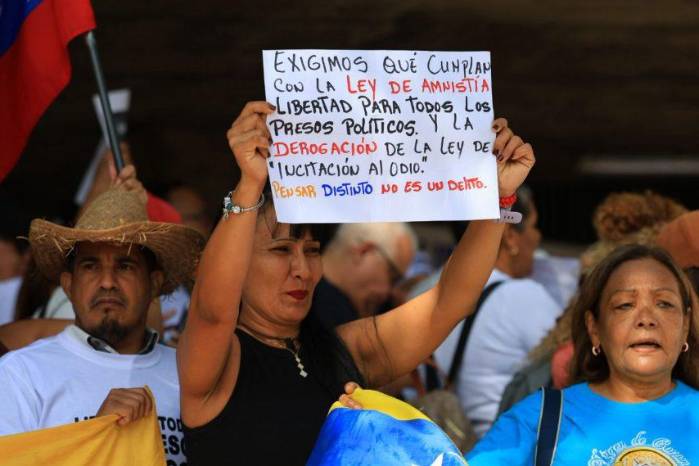 EXIGIMOS QUÉ CUMPLAN
CON LA LEY DE AMNISTÍA
LIBERTAD PARA TODOS LOS
PRESOS POLÍTICOS. Y LA
DEROGACIÓN DE LA LEY DE
"INCITACIÓN AL ODIO."
PENSAR DISTINTO NO ES UN DELITO.